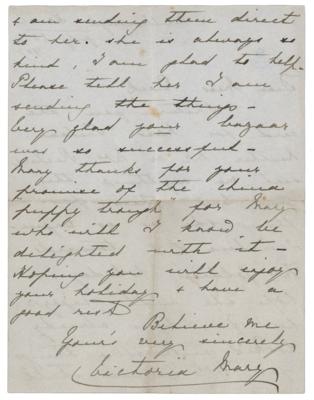 & am sending them direct
to her. she is always so
kind, I am glad to help.
Please tell her I am
sending the things -
Very glad your bazaar
was so successful -
Many thanks for your
promise of the china
puppy trough" for Mary
who will I know be
delighted with it -
Hoping you will enjoy
your holiday & have a
good rest
Believe me
Your's very sincerely
Victoria Mary